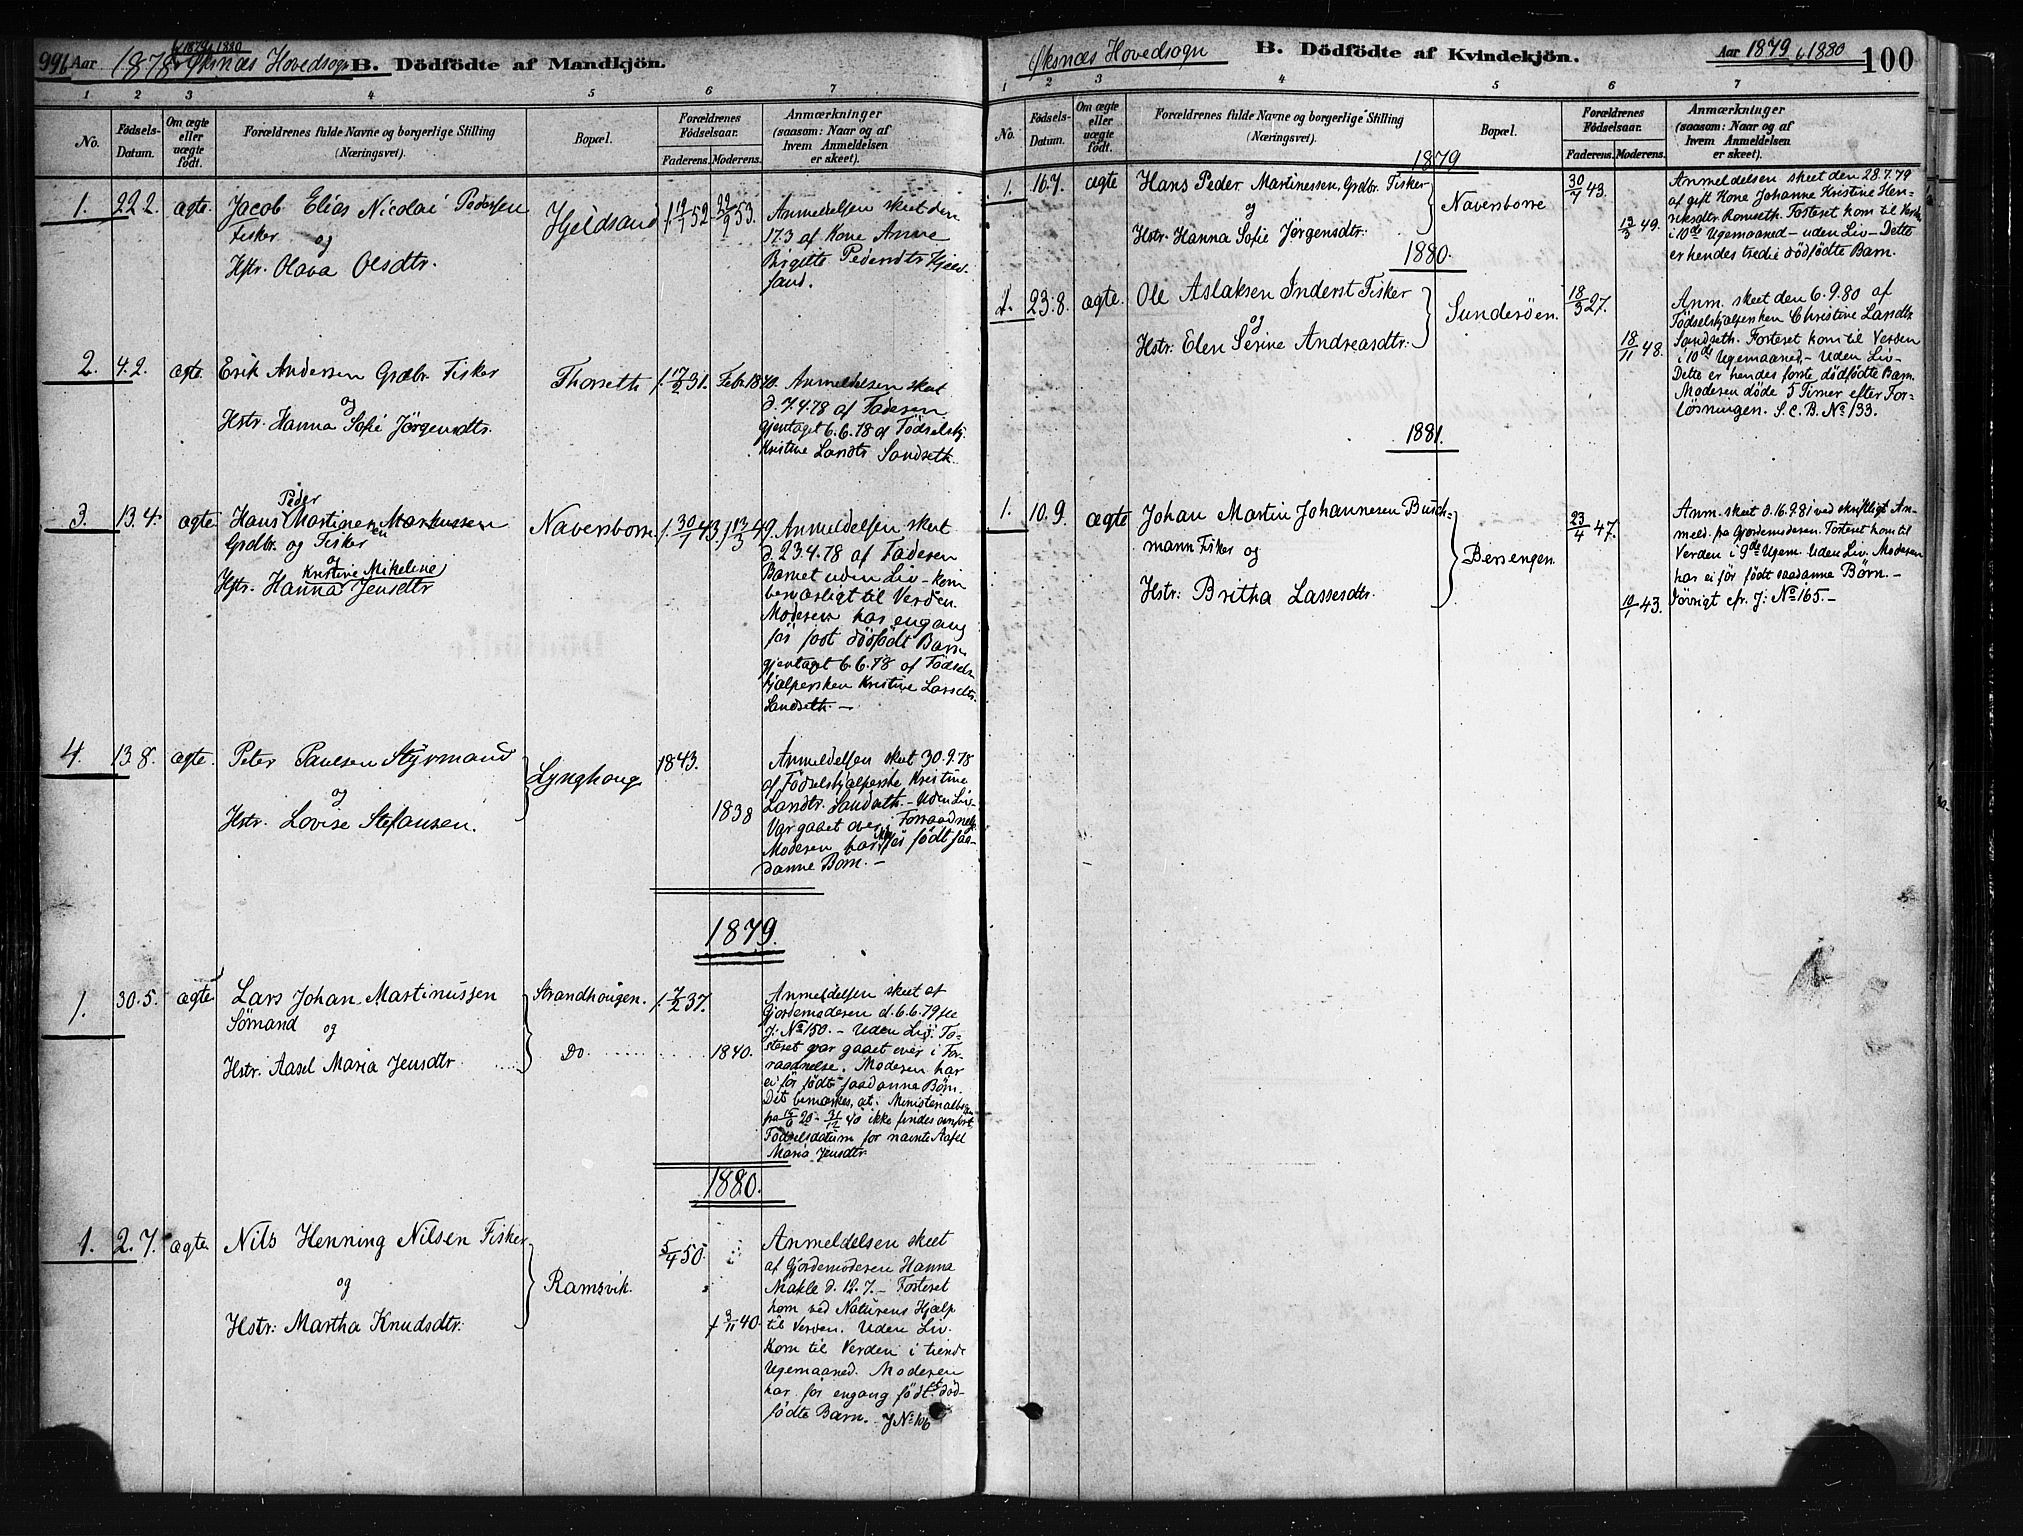 99b
Aar 1878, 1879 & 1880 Øksnæs Hovedsogn B. Dödfödte af Mandkjön.
1 2 3 4 5 6 7
No.
Födsels-
Datum.
Om ægte
eller
uægte
födt.
Forældrenes fulde Navne og borgerlige Stilling
(Næringsvei).
Bopæl.
Forældrenes
Födselsaar.
Faderens. Moderens.
Anmærkninger
(saasom: Naar og af
hvem Anmeldelsen
er skeet).
1. 22.2. ægte.
Jacob Elias Nicolai Pedersen
Fisker og
Hstr. Olava Olsdtr.
Hjeldsand
19/1 52
22/9 53.
Anmeldelsen skeet den
17.3 af Kone Anne
Birgitte Pedersdtr Hjeld-
sand.
2. 4.2. ægte.
Erik Andersen Grdbr. Fisker
og
Hstr. Hanna Sofie Jörgensdtr.
Thorseth
17/2 31. Febr. 1840.
Anmeldelsen skeet
d. 7.4.78 af Faderen
gjentaget 6.6.78 af Födselshj.
Kristine Larsdtr Sandseth.
3. 13.4. ægte
Peder
Hans Martinessen Markussen
Grdbr. og Fisker
og
Kristine Mikeline
Hstr. Hanna Jensdtr
Naversborre
30/7 43.
13/3 49.
Anmeldelsen skeet
d. 23.4.78 af Faderen
Barnet uden Liv - kom
besværligt til Verden
Moderen har engang
för födt dödfödt Barn
gjentaget 6.6.78 af Födsels-
hjælpersken Kristine Larsdtr.
Sandseth. -
4. 13.8. ægte.
Peter Paulsen Styrmand
og
Hstr. Lovise Stefansen.
Lynghoug
1843.
1838
Anmeldelsen skeet 30.9.78
af Födselshjælperske Kristine
Larsdtr. Sandseth. - Uden Liv
Var gaaet over i Forraadnelse
Moderen har ikke för födt saa-
danne Börn. -
1879.
1. 30.5. ægte
Lars Johan Martinussen
Sömand og
Hstr. Aasel Maria Jensdtr.
Strandhougen.
Do.
7/2 37.
1840.
Anmeldelsen skeet af
Gjordemoderen d. 6.6.79 se
J: No 150. - Uden Liv. Fo-
steret var gaaet over i For-
raadnelse. Moderen har
ei för födt saadanne Börn.
Det bemærkes, at i Ministerialbogen
fra 20 - 31/12 40 ikke findes anfört
Födselsdatum for nævnte Aasel
Maria Jensdtr.
1880.
1. 2.7. ægte
Nils Henning Nilsen Fisker
og
Hstr: Martha Knudsdtr.
Ramsvik.
5/4 50.
3/11 40.
Anmeldelsen skeet
af Gjordemoderen Hanna
Makle d. 12.7. - Fosteret
kom ved Naturens Hjælp
til Verden. Uden Liv.
Kom til Verden i tiende
Ugemaaned. Moderen
har för engang födt död-
födte Barn. J No 106
Øksnæs Hovedsogn B. Dödfödte af Kvindekjön. Aar 1879 & 1880 100
1 2 3 4 5 6 7
No.
Födsels-
Datum.
Om ægte
eller
uægte
födt.
Forældrenes fulde Navne og borgerlige Stilling
(Næringsvei).
Bopæl.
Forældrenes
Födselsaar.
Faderens. Moderens.
Anmærkninger
(saasom: Naar og af
hvem Anmeldelsen
er skeet).
1879
1. 16.7. ægte
Hans Peder Martinessen, Grdbr. Fisker
og
Hstr. Hanna Sofie Jørgensdtr:
Naversborre
30/7 43.
13/3 49.
Anmeldelsen skeet den 28.7.79
af gift Kone Johanne Kristine Hen-
riksdtr Romseth. Fosteret kom til Verden
i 10de Ugemaaned - uden Liv - Dette
er hendes tredie dödfödte Barn.
1880.
1. 23.8. ægte.
Ole Aslaksen Inderst Fisker
og
Hstr: Elen Serine Andreasdtr:
Sunderöen.
18/3 27.
18/11 48.
Anm. skeet den 6.9.80 af
Födselshjælpersken Christine Larsdtr
Sandseth. Fosteret kom til Verden
i 10de Ugemaaned - Uden Liv -
Dette er hendes förste dödfödte Barn.
Moderen döde 5 Timer efter For-
lösningen. S.C.B. No 133.
1881.
1. 10.9. ægte
Johan Martin Johannesen Busch-
mann Fisker og
Hstr: Britha Lassesdtr.
Bersengen.
23/4 47.
10/1 43.
Anm. skeet d. 16.9.81 ved skriftligt An-
meld. fra Gjordemoderen. Fosteret kom til
Verden i 9de Ugem. Uden Liv. Moderen
har ei för födt saadanne Börn. -
Iövrigt cfr. J: No 165. -